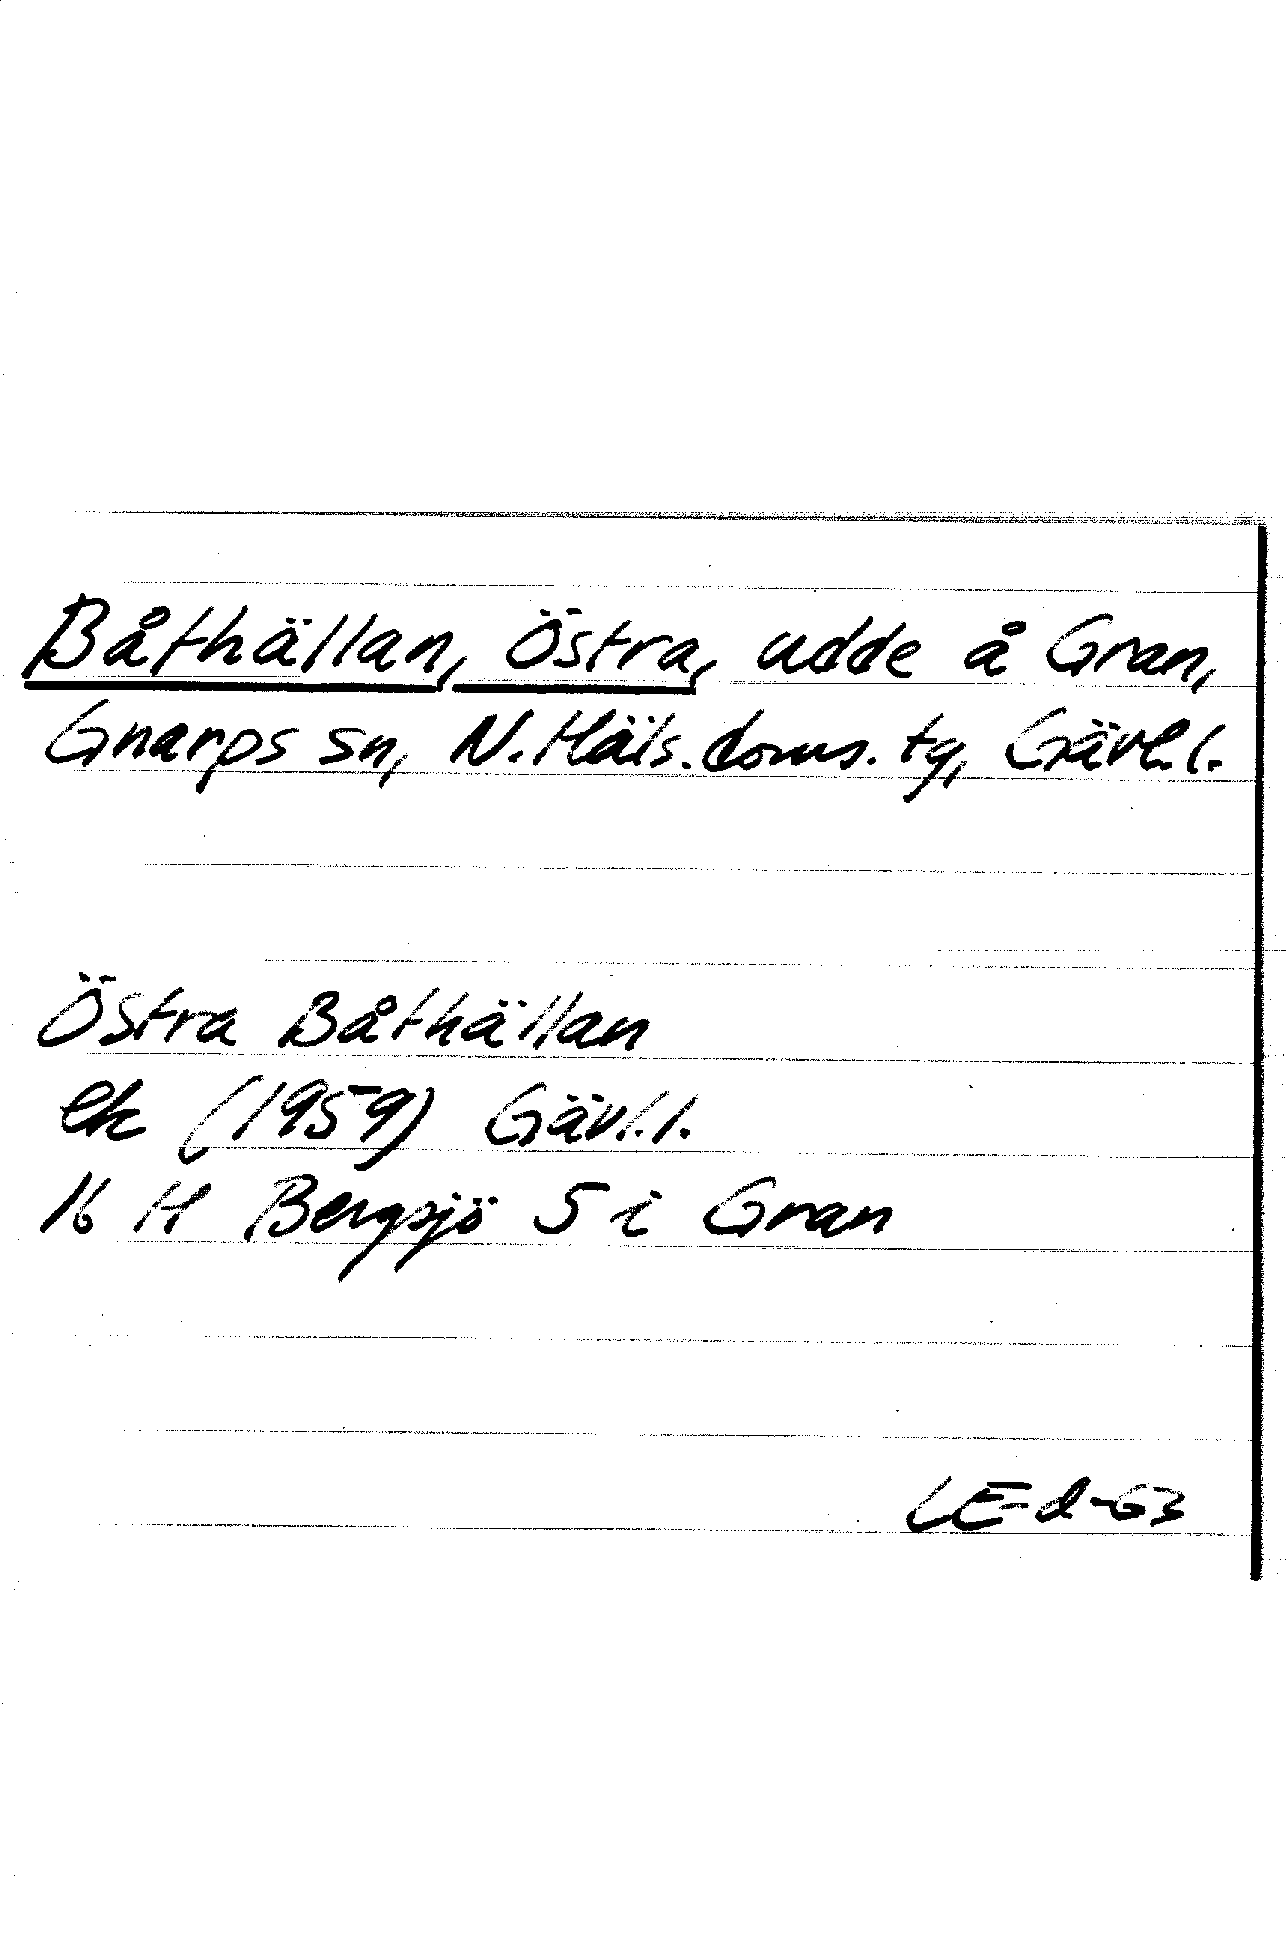 Båthällan, Östra, udde å Gran,
Gnarps sn, N. Häls. doms. tg, Gävl. l.
Östra Båthällan
ek (1959) Gävl. l.
16 H Bergsjö 5 i Gran
LE-d-63